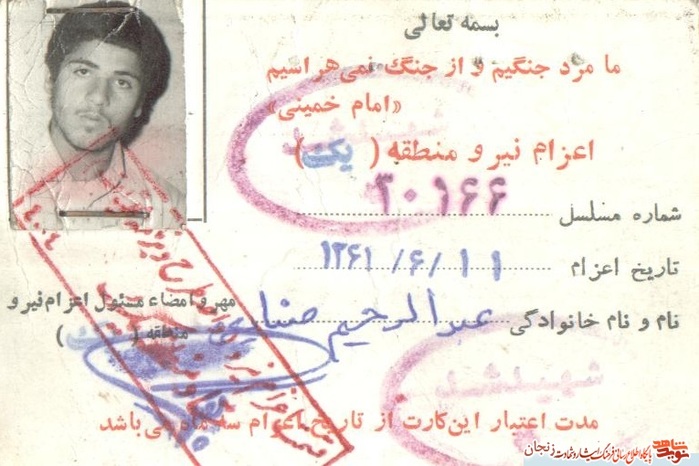 بسمه تعالی
ما مرد جنگیم و از جنگ نمی‌هراسیم
«امام خمینی»
اعزام نیرو منطقه ( یک )
شماره مسلسل ۳۰۱۶۶
تاریخ اعزام ۱۳۶۱/۶/۱۱
نام و نام خانوادگی عبدالرحیم
مهر و امضاء مسئول اعزام نیرو
منطقه ( )
شهید شد
شهید شد
مدت اعتبار این کارت از تاریخ اعزام سه ماه می باشد
نوید شاهد
پایگاه اطلاع رسانی فرهنگ ایثار و شهادت زنجان